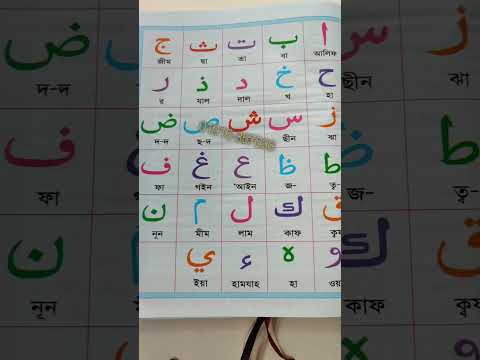 ا ب ت ث ج
আলিফ বা তা ছা জীম
ح خ د ذ ر
হা খ দাল যাল র
ز س ش ص ض
ঝা ছীন ছ-দ দ-দ
ط ظ ع غ ف
ত্ব- জ- 'আইন গইন ফা
ق ك ل م ن
কাফ লাম মীম নূন
و ه ء ي
হা হামযাহ ইয়া